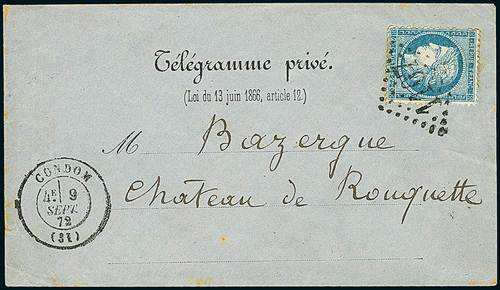 Télégramme privé.
(Loi du 13 juin 1866, article 12.)
M Bazergue
Château de Rouquette
CONDOM
9
SEPT.
72
(31)